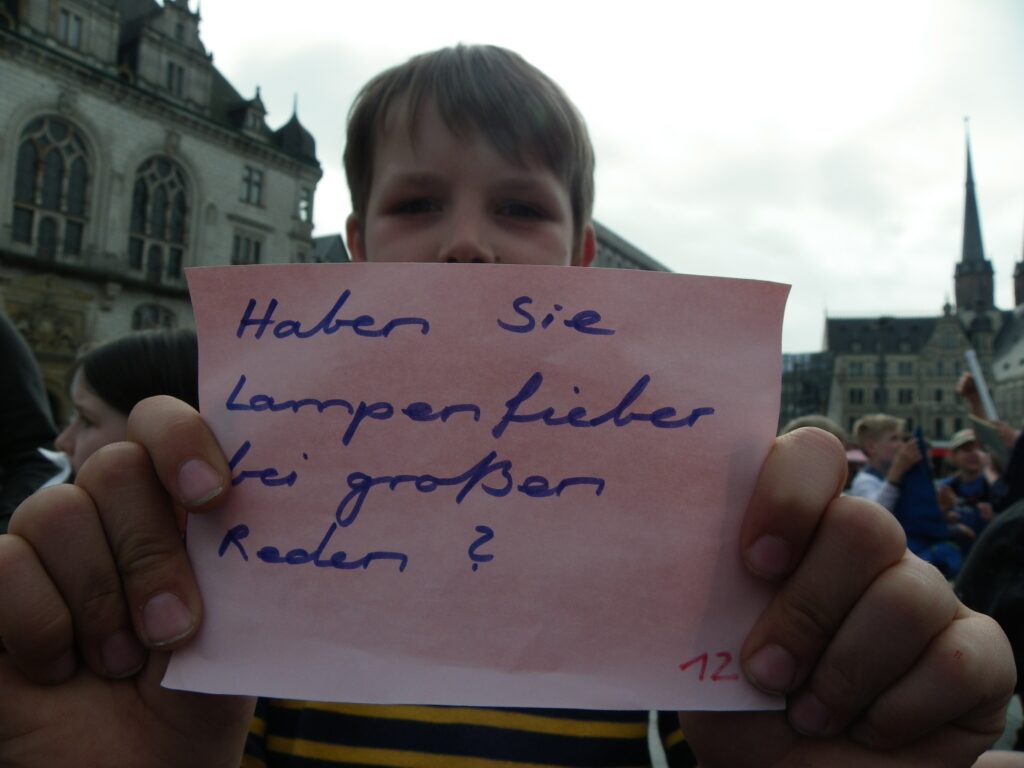 Haben Sie
Lampenfieber
bei großen
Reden ?
12